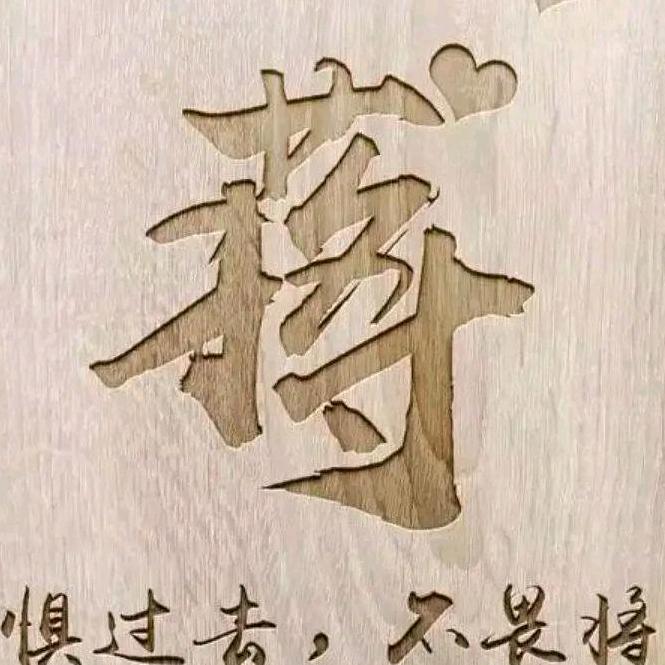 蒋
惧过去，不畏将